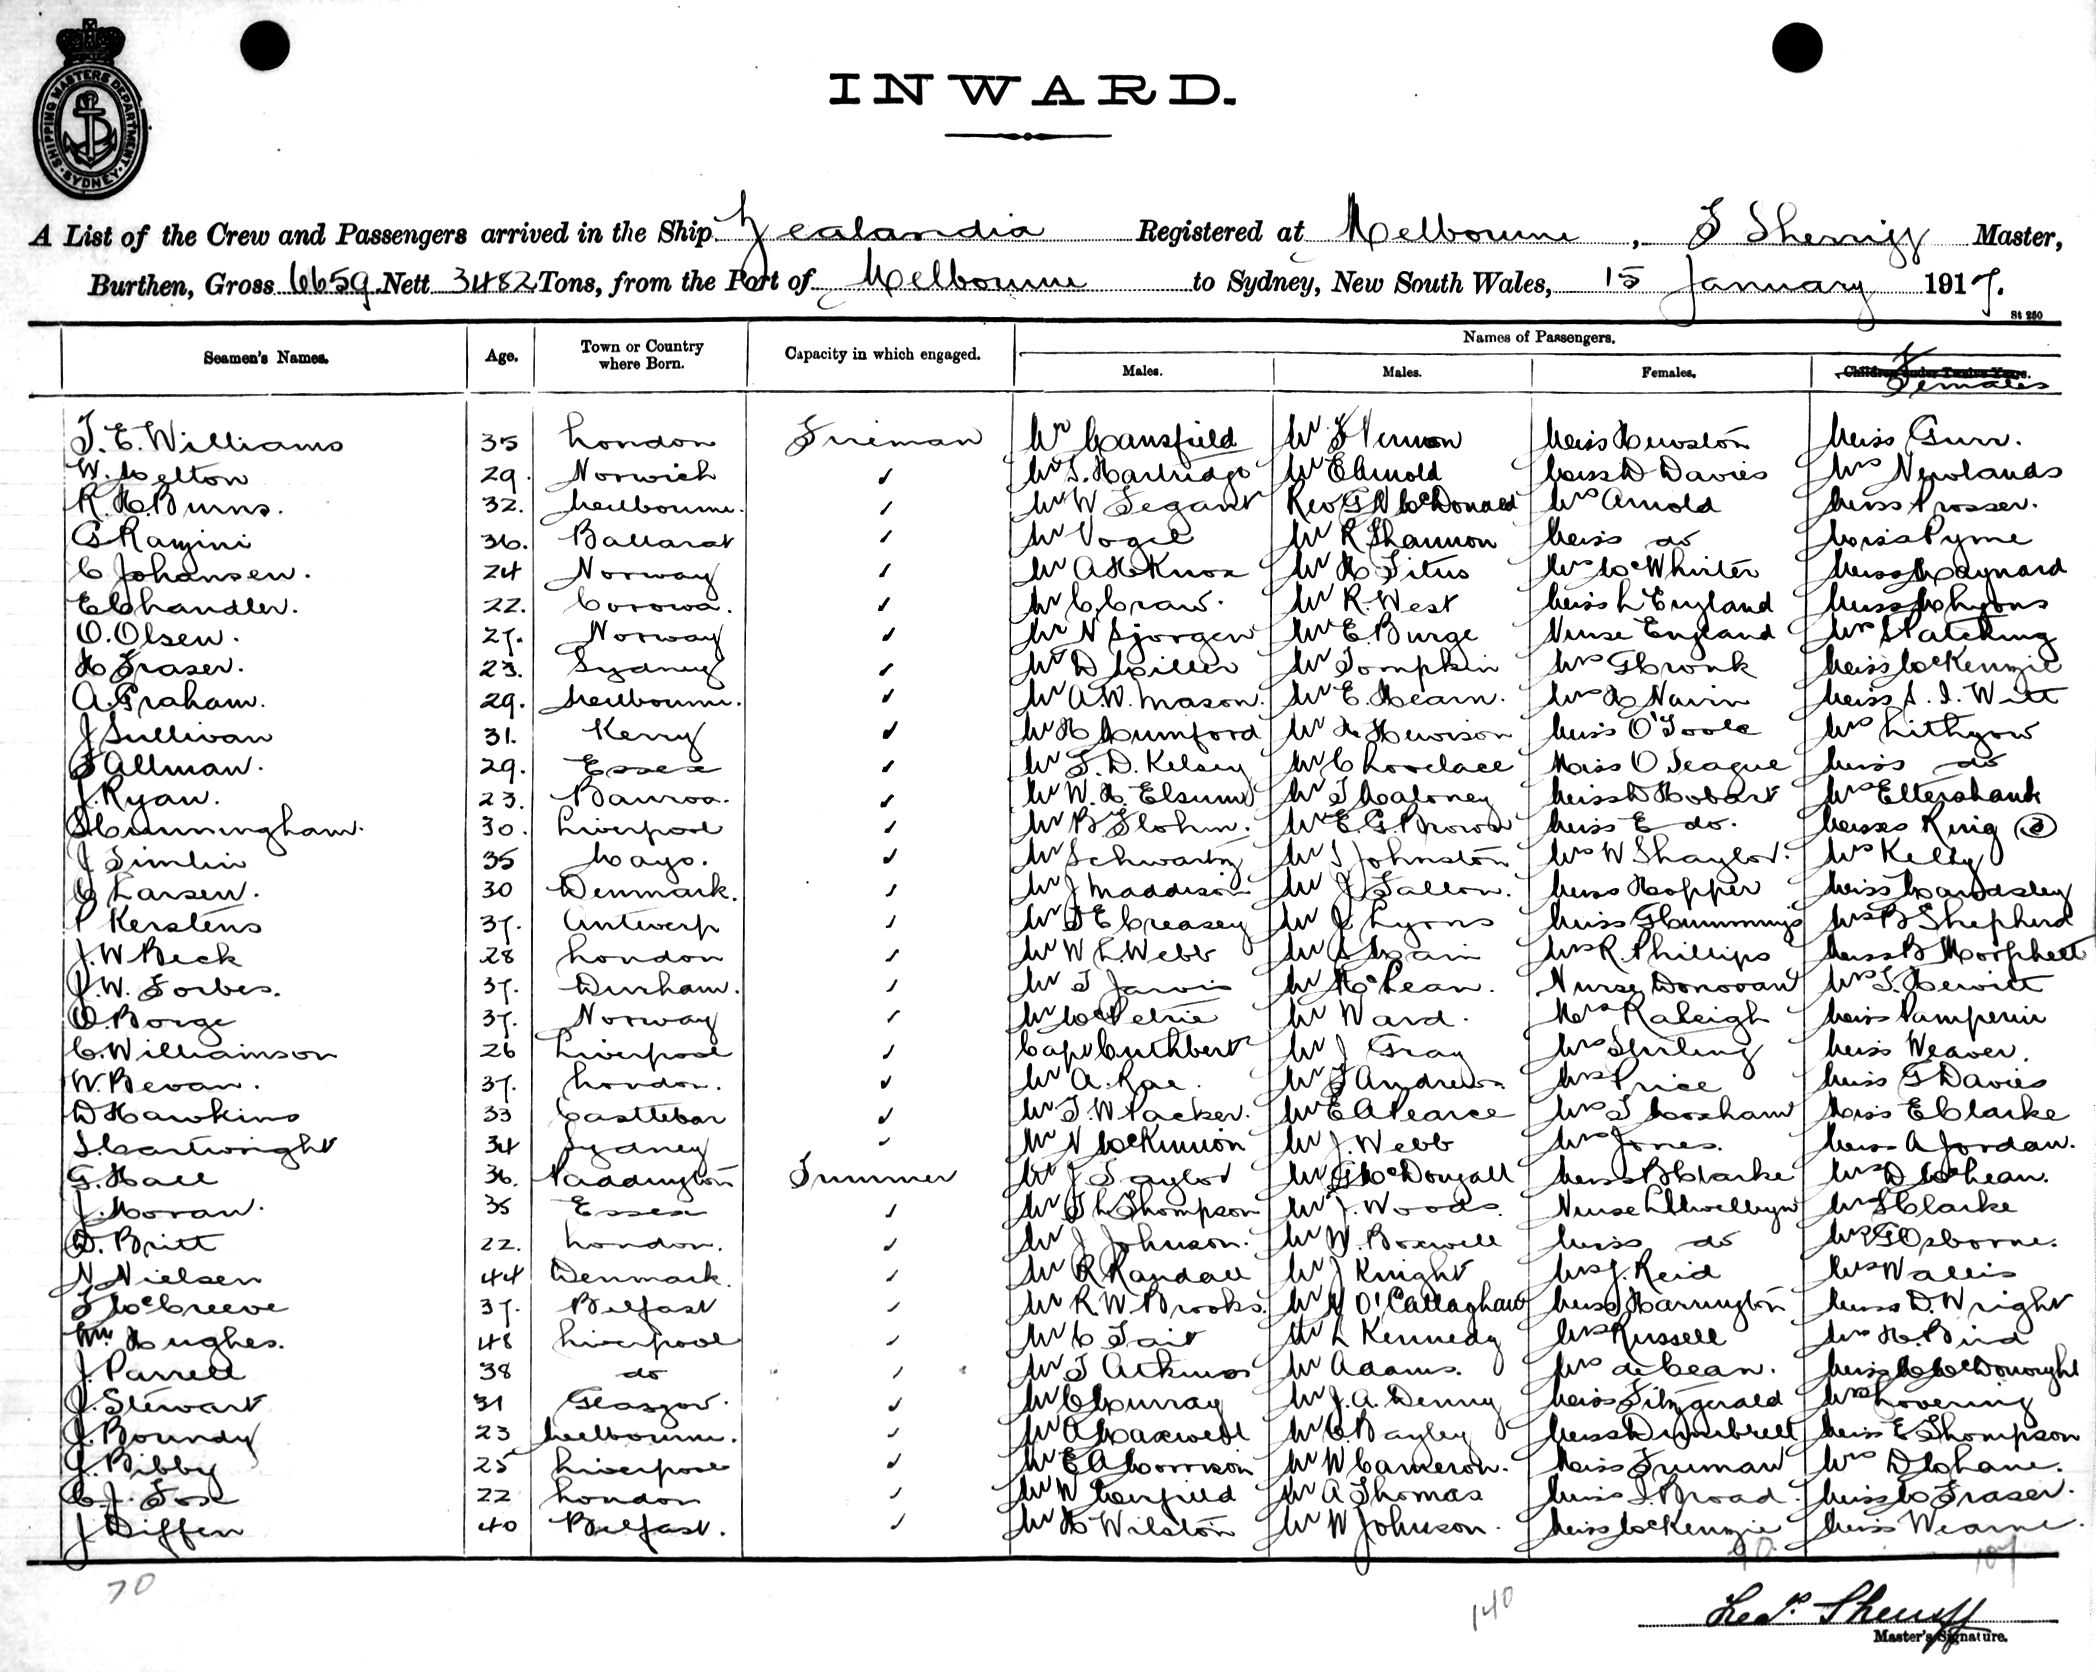 SHIPPING MASTERS DEPARTMENT SYDNEY
INWARD.
A List of the Crew and Passengers arrived in the Ship Zealandia Registered at Melbourne, Master,
Burthen, Gross 6659 Nett 3482 Tons, from the Port of Melbourne to Sydney, New South Wales, 15 January 1917.
St 250
Seamen's Names. Age. Town or Country where Born. Capacity in which engaged. Names of Passengers.
Males. Males. Females. Children under Twelve Years. Females
T. E. Williams 35 London Fireman Mr Mansfield Mr F Vernon Miss Hewston Miss Gurr.
W. Melton 29. Norwich ✓ Mr T. Hartridge Mr E Arnold Miss D Davies Mrs Newlands
R. H. Burns. 32. Melbourne. ✓ Mr W Tegart Rev G N McDonald Mrs Arnold Miss Prosser.
36. Ballarat ✓ Mr Vogel Mr R Shannon Miss do Miss Pyme
C Johansen. 24 Norway ✓ Mr A H Knox Mr H Titus Mrs McWhirter Miss Maynard
E Chandler. 22. Corowa. ✓ Mr C. Craw. Mr R. West Miss L England Miss M Lyons
O. Olsen. 27. Norway ✓ Mr N Sjorgen Mr E. Burge Nurse England
H Fraser. 23. Sydney ✓ Mr D Miller Mr Tompkin Mrs G Cronk Miss McKenzie
A. Graham. 29. Melbourne. ✓ Mr A. W. Mason. Mr E. Hearn. Mrs H Navin Miss S. I. Witt
J Sullivan 31. Kerry ✓ Mr H Mumford Mr A Hewison Miss O'Toole Mrs Lithgow
F Allman. 29. Essex ✓ Mr F. D. Kelsey Mr C Lovelace Miss O Teague Miss do
J. Ryan. 23. ✓ Mr W. H. Elsum Mr T Maloney Miss D Hobart Mrs Ettershank
S Cunningham. 30. Liverpool ✓ Mr B Flohm. Mr E. G. Brown Miss E do. Misses King (2)
J Timlin 35 Mayo. ✓ Mr Schwartz Mr S Johnston Mrs W Shaylor. Mrs Kelly
C Larsen. 30 Denmark. ✓ Mr J Maddison Mr J Fallon. Miss Hopper Miss Mardsley
P Kerstens 37. Antwerp ✓ Mr T E Creasey Mr J Lyons Miss G Cummings Mrs B Shepherd
J. W Beck 28 London ✓ Mr W L. Webb Mr S Main Mrs R. Phillips Miss B Morphett
J. W. Forbes. 37. Durham. ✓ Mr T Jarvis Mr McLean. Nurse Donovan Mrs T. Hewitt
O. Borge 37. Norway ✓ Mr McPetrie Mr Ward. Mrs Raleigh Miss Pamperin
C. Williamson 26 Liverpool ✓ Capt Cuthbert Mr J Gray Mrs Stirling Miss Weaver.
W. Bevan. 37. London. ✓ Mr A. Rae. Mr F Andrews Mrs Price Miss G Davies
D Hawkins 33 Castlebar ✓ Mr T. W Packer. Mr E A Pearce Mrs T Moxham Miss E Clarke
S. Cartwright 34 Sydney ✓ Mr N McKinnon Mr J. Webb Mrs Jones. Miss A Jordan.
G. Hall 36. Paddington Trimmer Mr J Taylor Mr G McDougall Miss B Clarke Mrs D McLean.
J. Moran. 35 Essex ✓ Mr T L Thompson Mr J. Woods. Nurse Llwellyn Mrs S Clarke
D. Britt 22. London. ✓ Mr J Johnson. Mr W. Boxwell Miss do Mrs G Osborne.
N Nielsen 44 Denmark. ✓ Mr R Randall Mr J Knight Mrs J. Reid Mrs Wallis
F McCreeve 37. Belfast ✓ Mr R W Brooks. Mr N O'Callaghan Miss Harrington Miss D. Wright
Wm Hughes. 48 Liverpool ✓ Mr C Tait Mr L Kennedy Mrs Russell Mrs H. Bird
J. Parrell 38 do ✓ Mr T Atkins Mr Adams. Mrs de Bean. Miss M McDonought
J. Stewart 31 Glasgow. ✓ Mr C Murray Mr J. A. Denny Miss Fitzgerald Mrs Lovering
J. Boundy 23 Melbourne. ✓ Mr A Maxwell Mr C. Bayley Miss Dumbrell Miss E Thompson
J. Bibby 25 Liverpool ✓ Mr E A Morrison Mr W Cameron. Miss Truman
C. J. Fox 22 London ✓ Mr A Thomas Miss I. Broad. Miss M Fraser.
J Diffen 40 Belfast. ✓ Mr H Wilston Mr W Johnson. Miss McKenzie Miss Wearne.
70 140 90 107
Master's Signature.